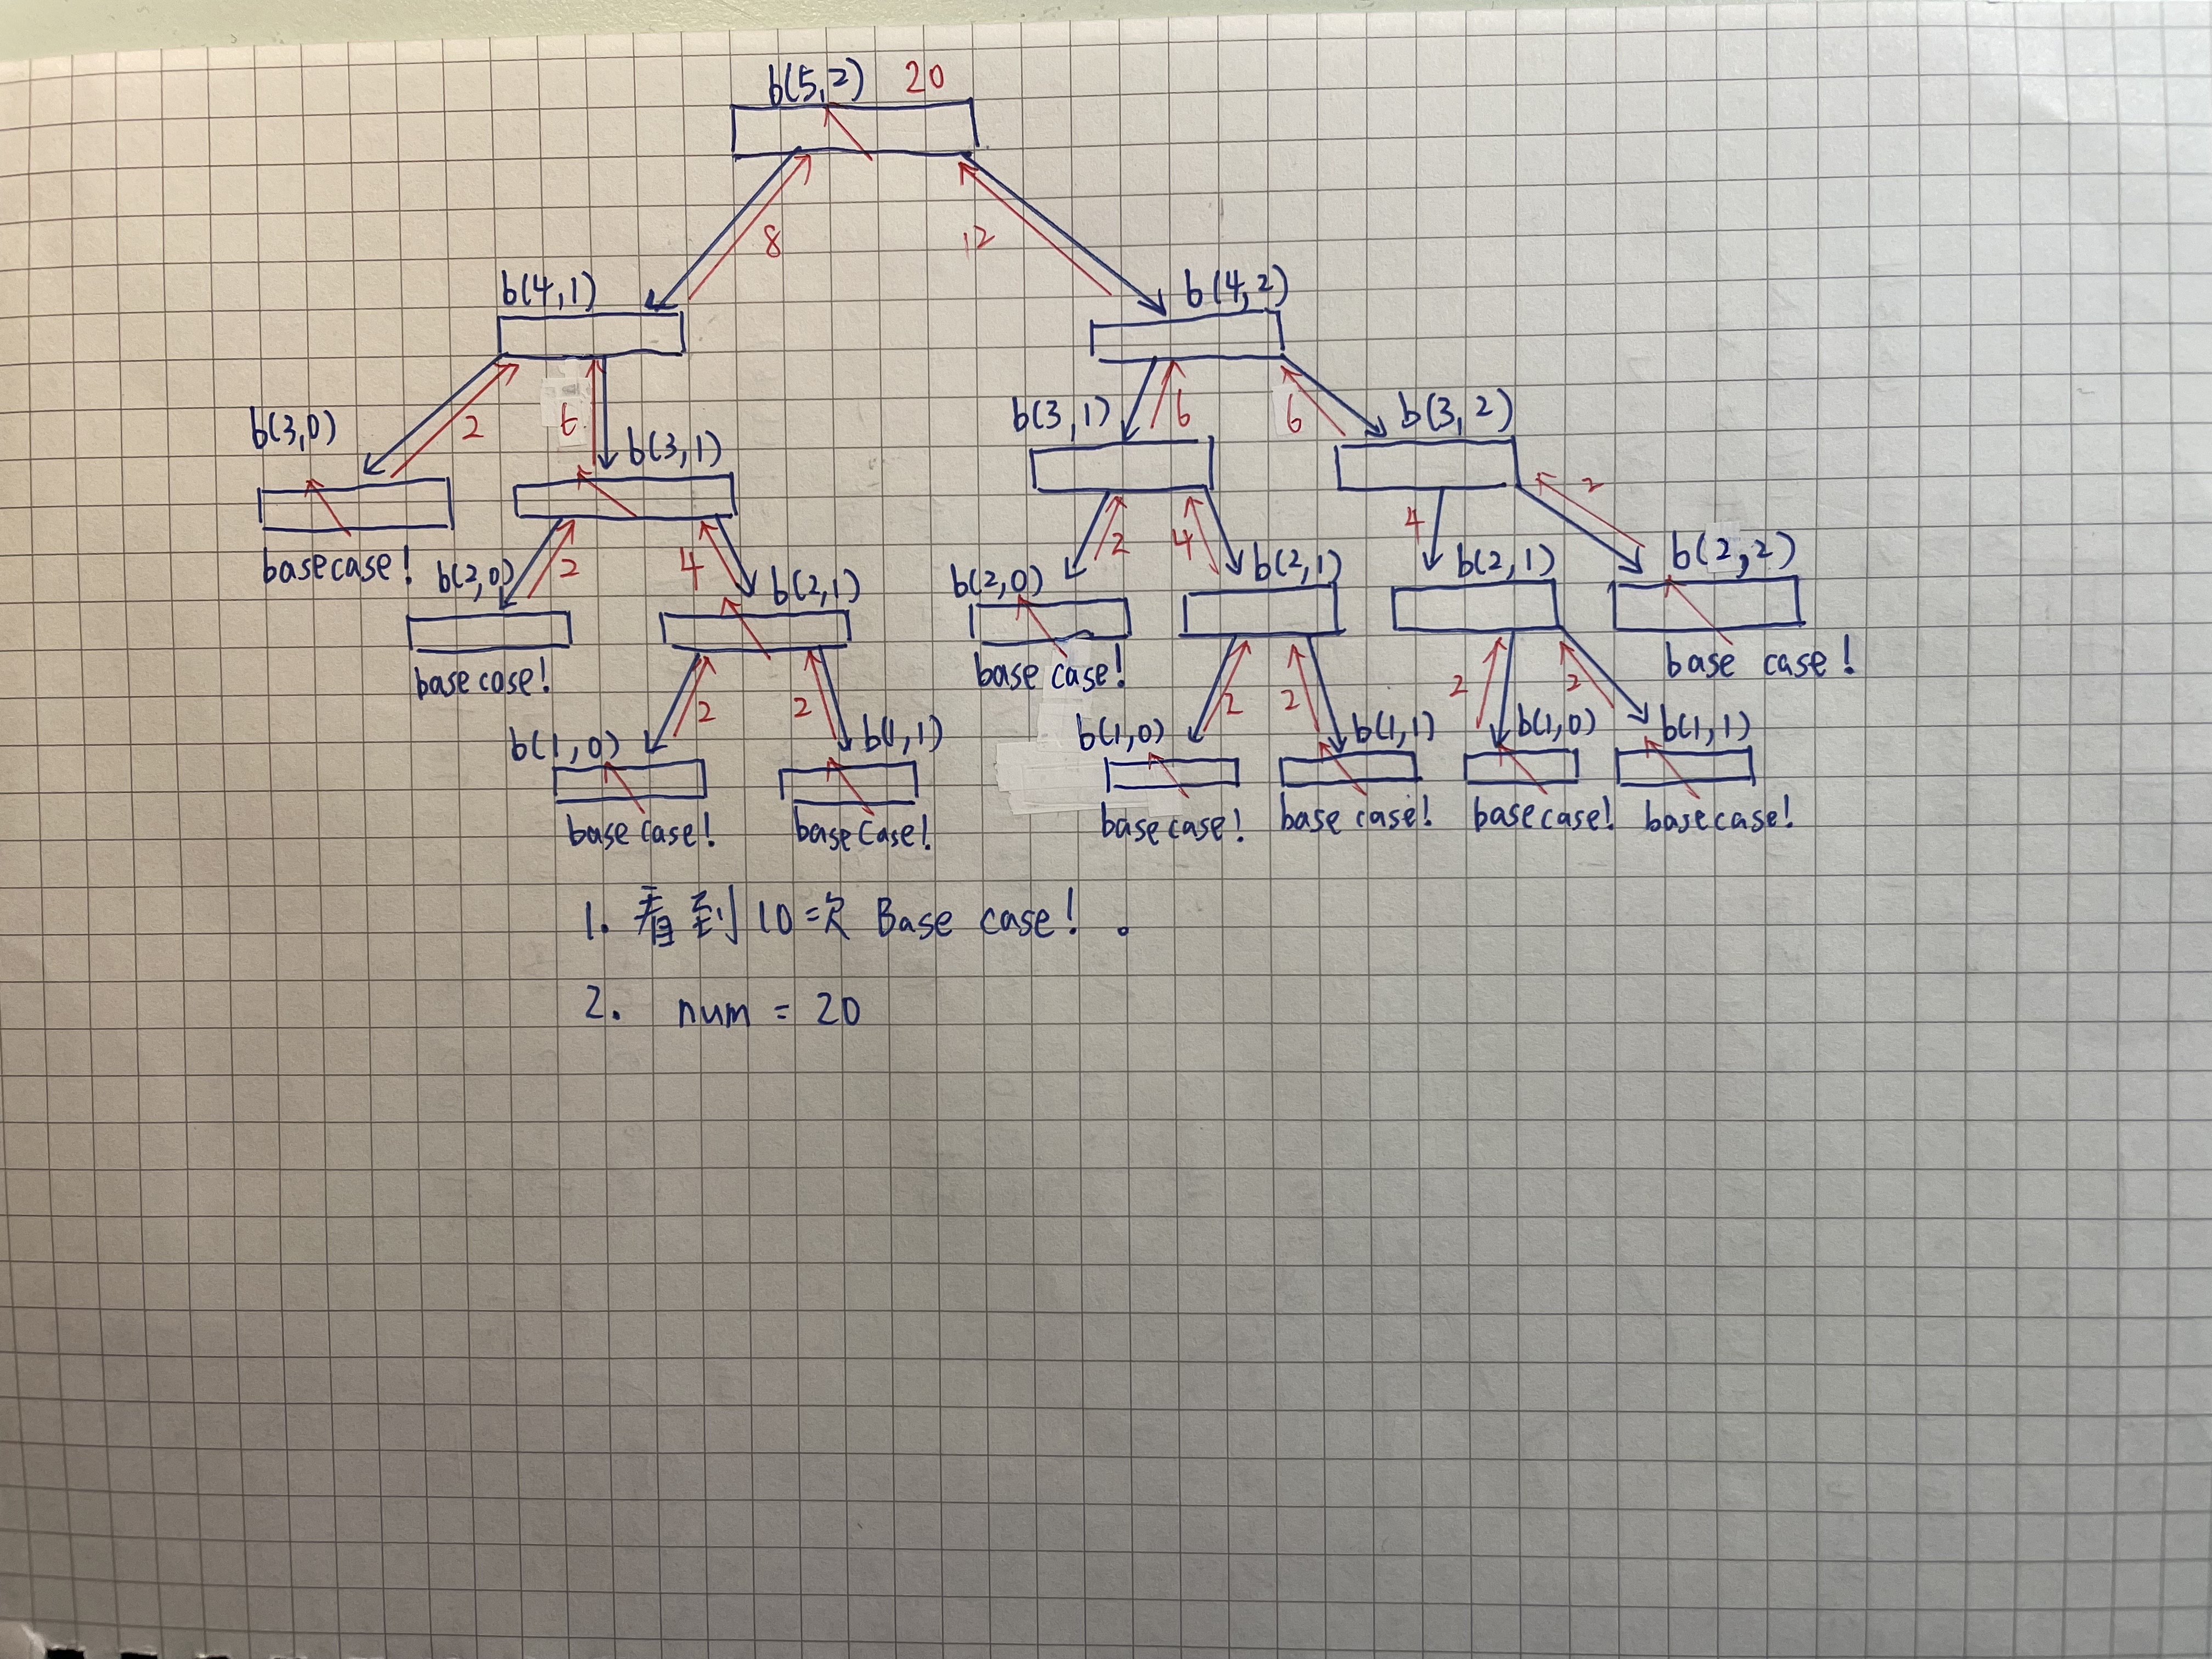 b(5,2) 20
8 12
b(4,1) b(4,2)
2 6 6 6
b(3,0) b(3,1) b(3,1) b(3,2)
base case!
2 4 2 4 4 2
b(2,0) b(2,1) b(2,0) b(2,1) b(2,1) b(2,2)
base case! base case! base case!
2 2 2 2 2 2
b(1,0) b(1,1) b(1,0) b(1,1) b(1,0) b(1,1)
base case! base case! base case! base case! base case! base case!
1. 看到 10次 Base case! 。
2. num = 20